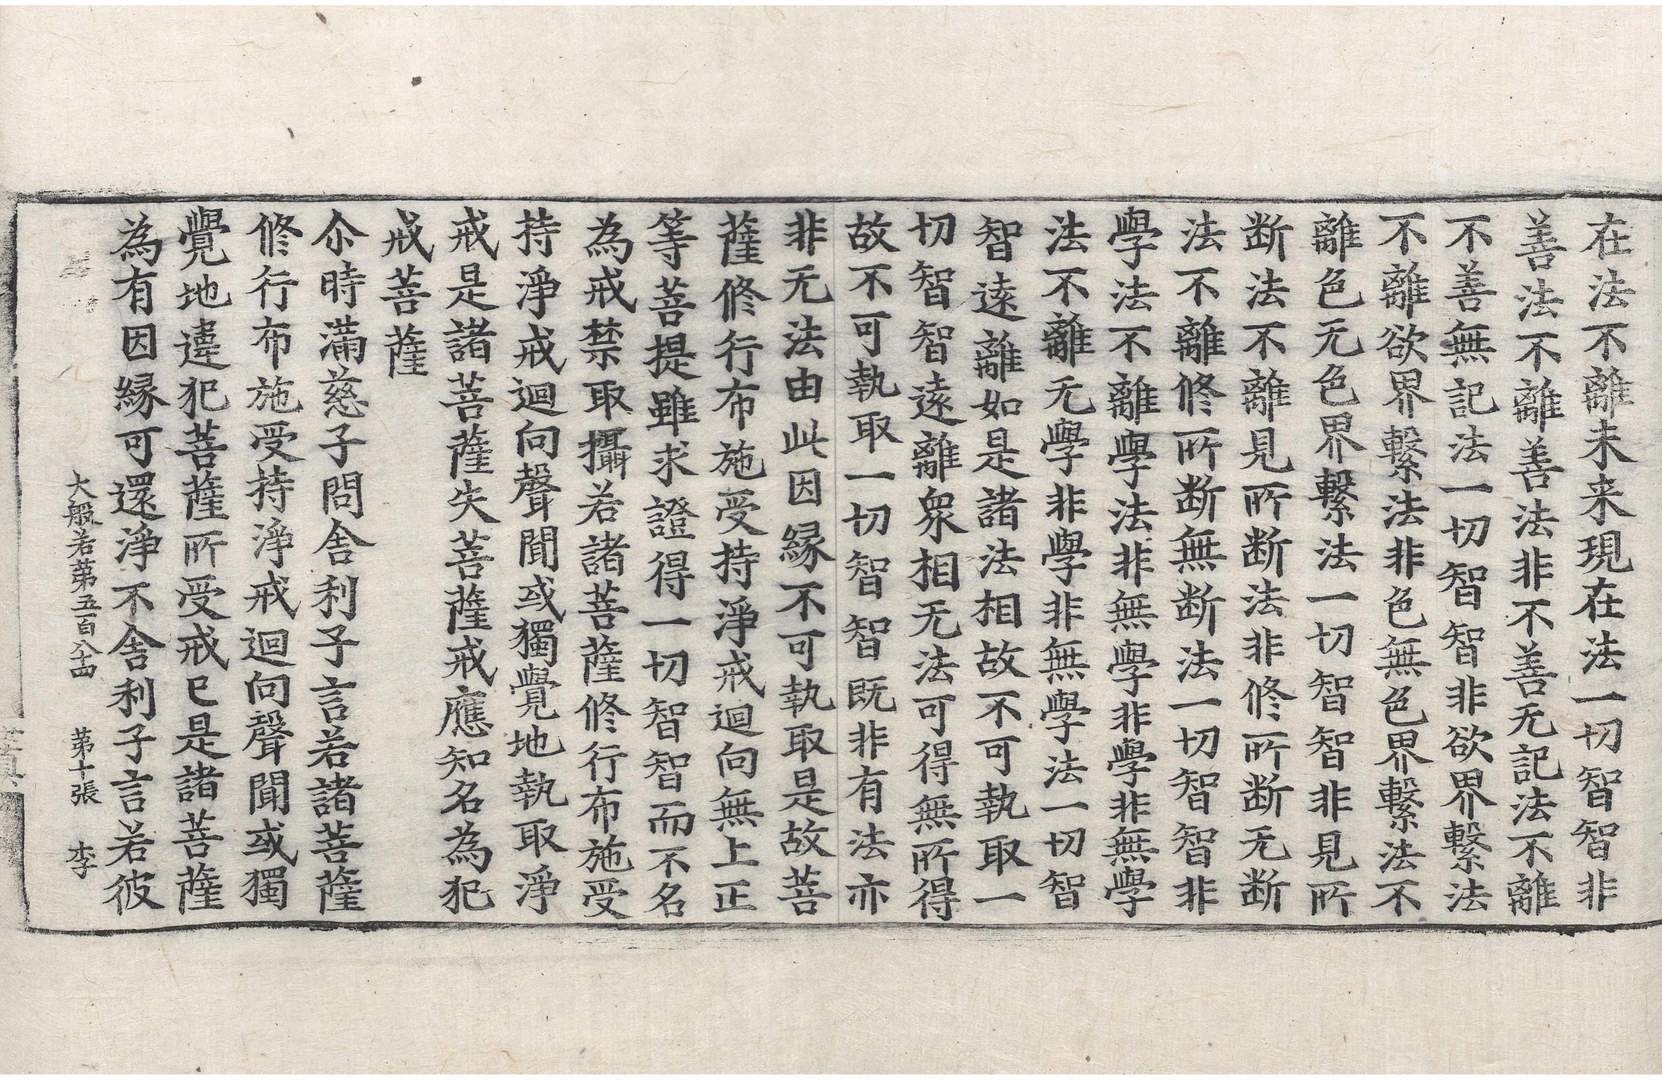 在法不離未来現在法一切智智非
善法不離善法非不善无記法不離
不善無記法一切智智非欲界繫法
不離欲界繫法非色無色界繫法不
離色无色界繫法一切智智非見所
断法不離見所断法非修所断无断
法不離修所断無断法一切智智非
學法不離學法非無學非學非無學
法不離无學非學非無學法一切智
智遠離如是諸法相故不可執取一
切智智遠離衆相无法可得無所得
故不可執取一切智智既非有法亦
非无法由此因縁不可執取是故菩
薩修行布施受持淨戒迴向無上正
等菩提雖求證得一切智智而不名
為戒禁取攝若諸菩薩修行布施受
持淨戒迴向聲聞或獨覺地執取淨
戒是諸菩薩失菩薩戒應知名為犯
戒菩薩
尒時滿慈子問舍利子言若諸菩薩
修行布施受持淨戒迴向聲聞或獨
覺地違犯菩薩所受戒已是諸菩薩
為有因縁可還淨不舍利子言若彼
大般若第五百八十四 第十張 李